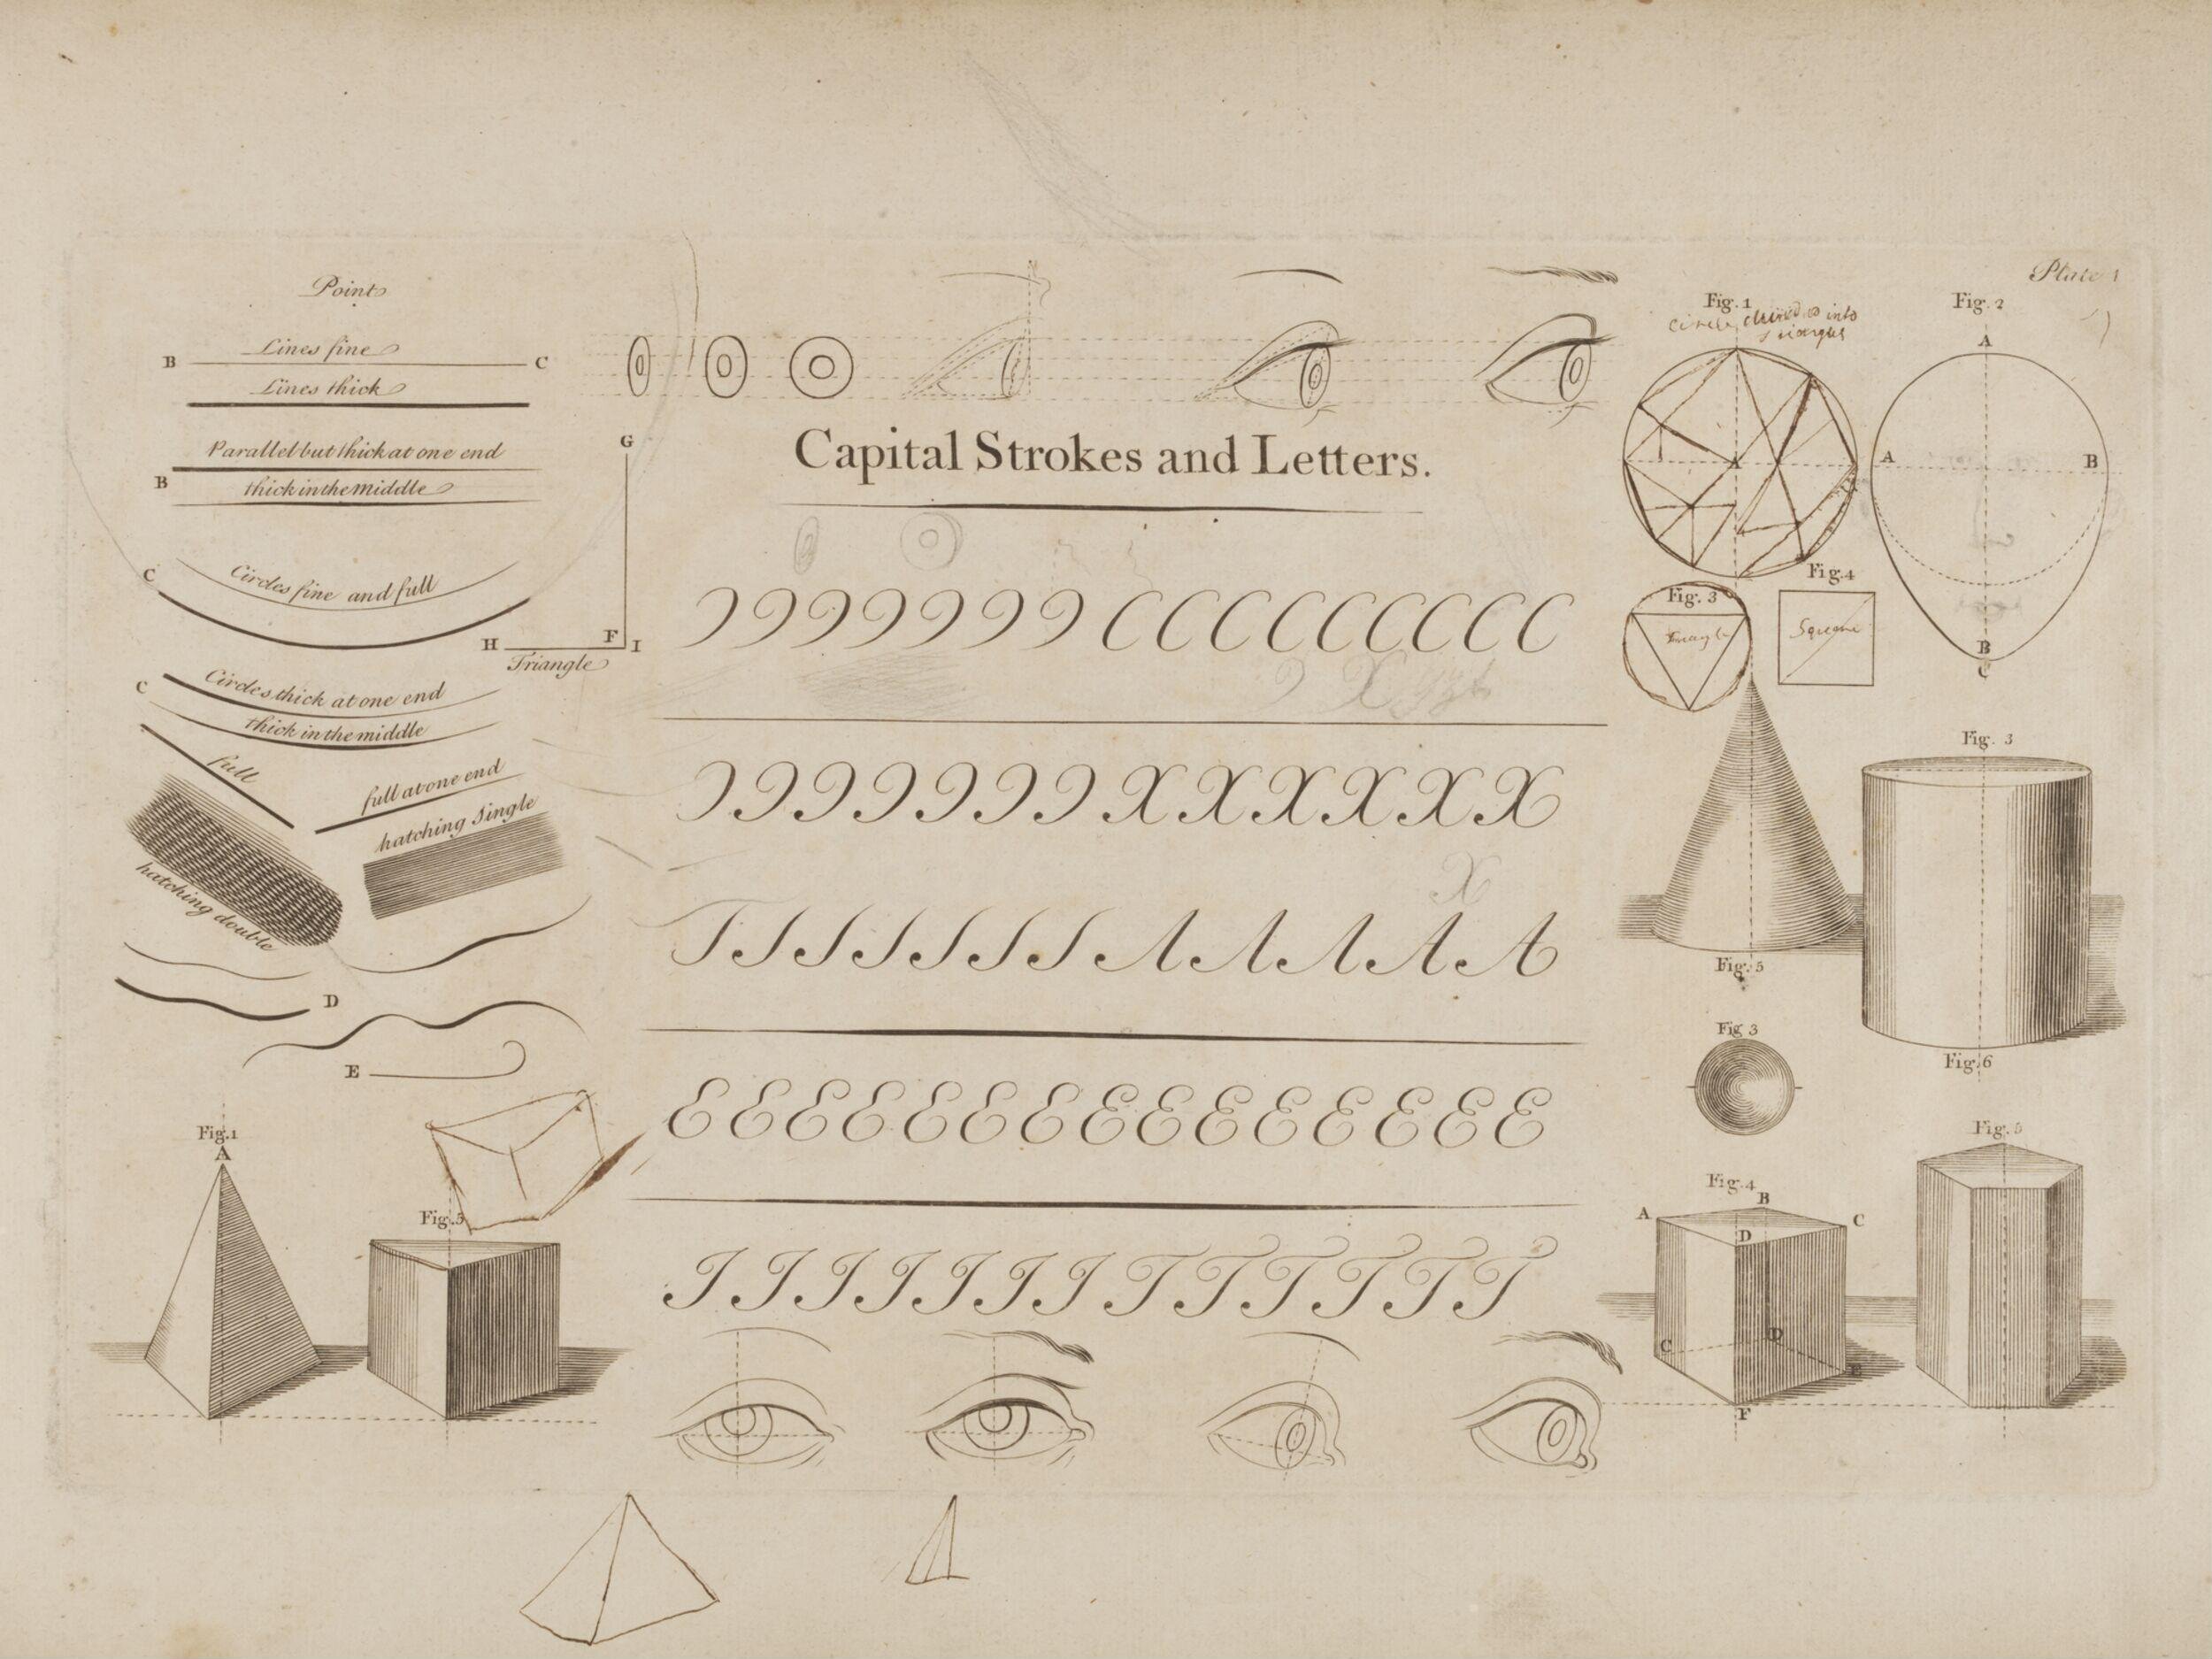 Plate 1
Point
Lines fine
B C
Lines thick
Parallel but thick at one end
B
thick in the middle
C
Circles fine and full
G
H F I
Triangle
C
Circles thick at one end
thick in the middle
full
full at one end
hatching Single
hatching double
D
E
Fig.1
A
Fig.5
Capital Strokes and Letters.
C C C C C C C C C
X X X X X X
A A
E E E E E E E E E E E E E E E
I I I I I I I T T T T T T
Fig.1
Circle divided into
Fig.2
A
A
A B
B
C
Fig.3
Triangle
Fig.4
Square
Fig.5
Fig. 3
Fig.6
Fig 3
Fig.4
A B C
D
C D
E
F
Fig.5